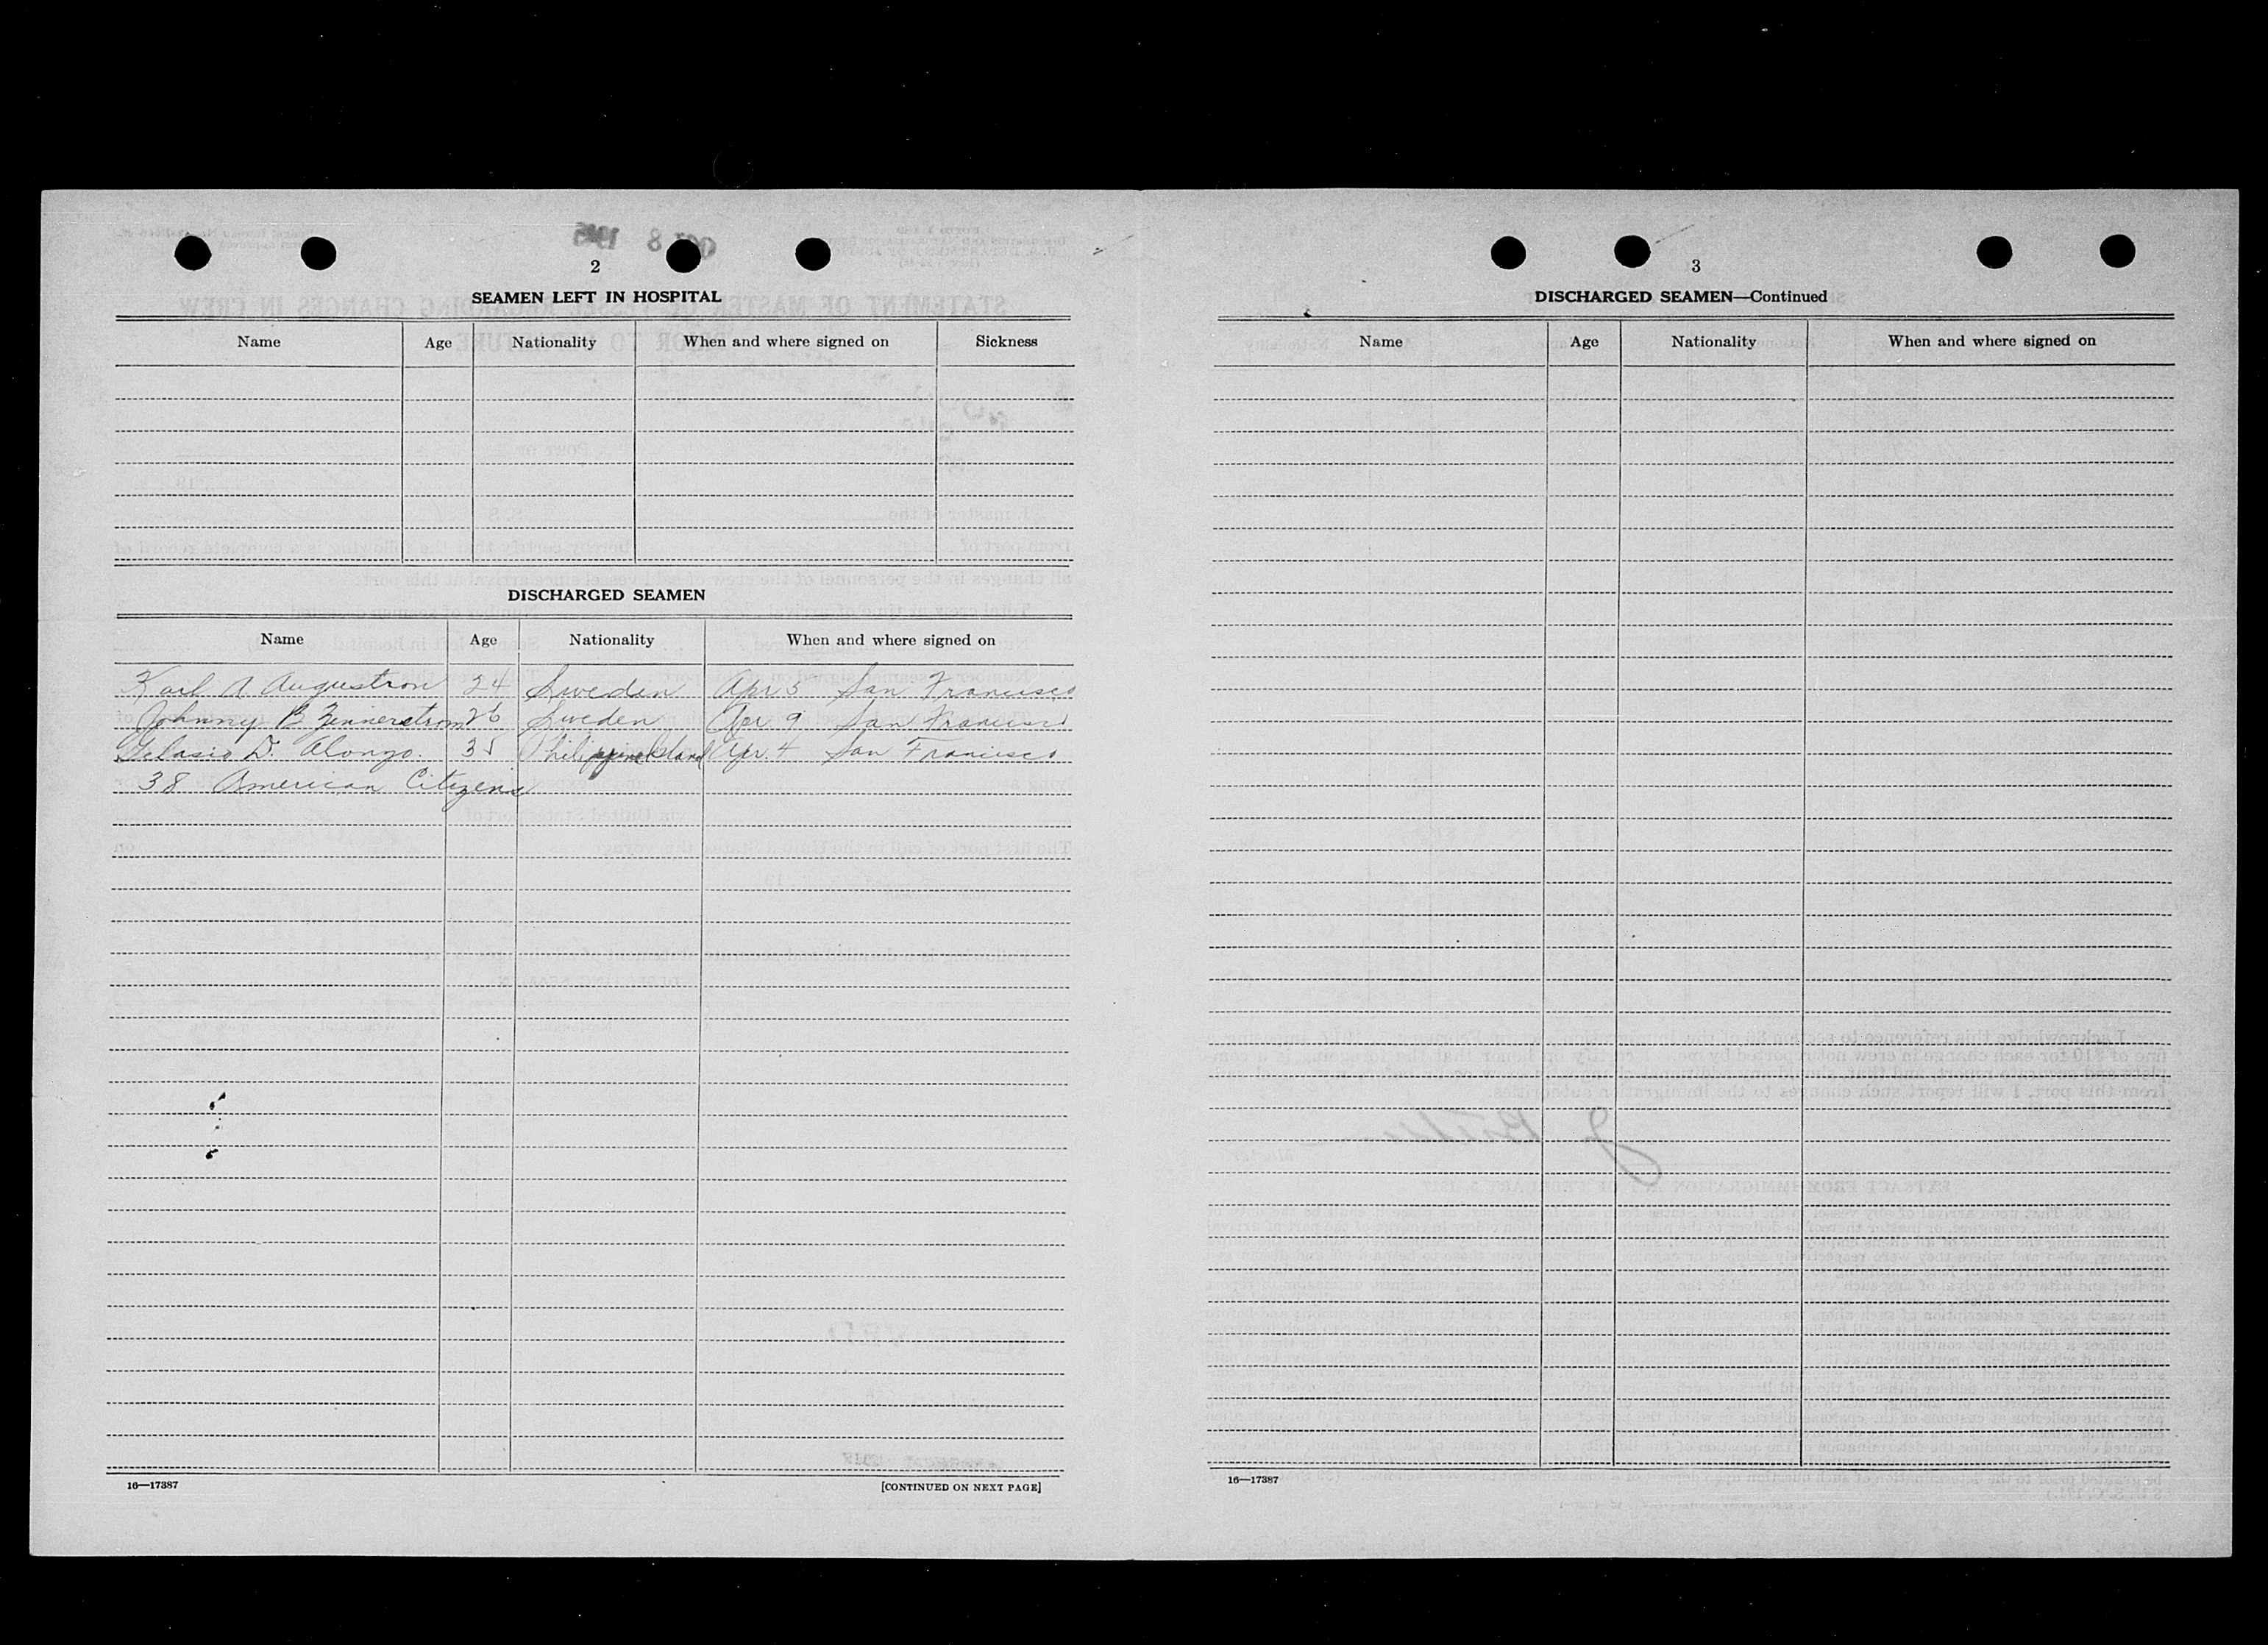 2
SEAMEN LEFT IN HOSPITAL
Name Age Nationality When and where signed on Sickness
DISCHARGED SEAMEN
Name Age Nationality When and where signed on
Karl A Augustron 24 Sweden Apr 5 San Francisco
Johnny B Zennerstrom 26 Sweden Apr 9 San Francisco
Gelasio D. Alongo. 35 Philippine Island Apr. 4 San Francisco
38 American Citizens
16—17387
[CONTINUED ON NEXT PAGE]
3
DISCHARGED SEAMEN—Continued
Name Age Nationality When and where signed on
16—17387